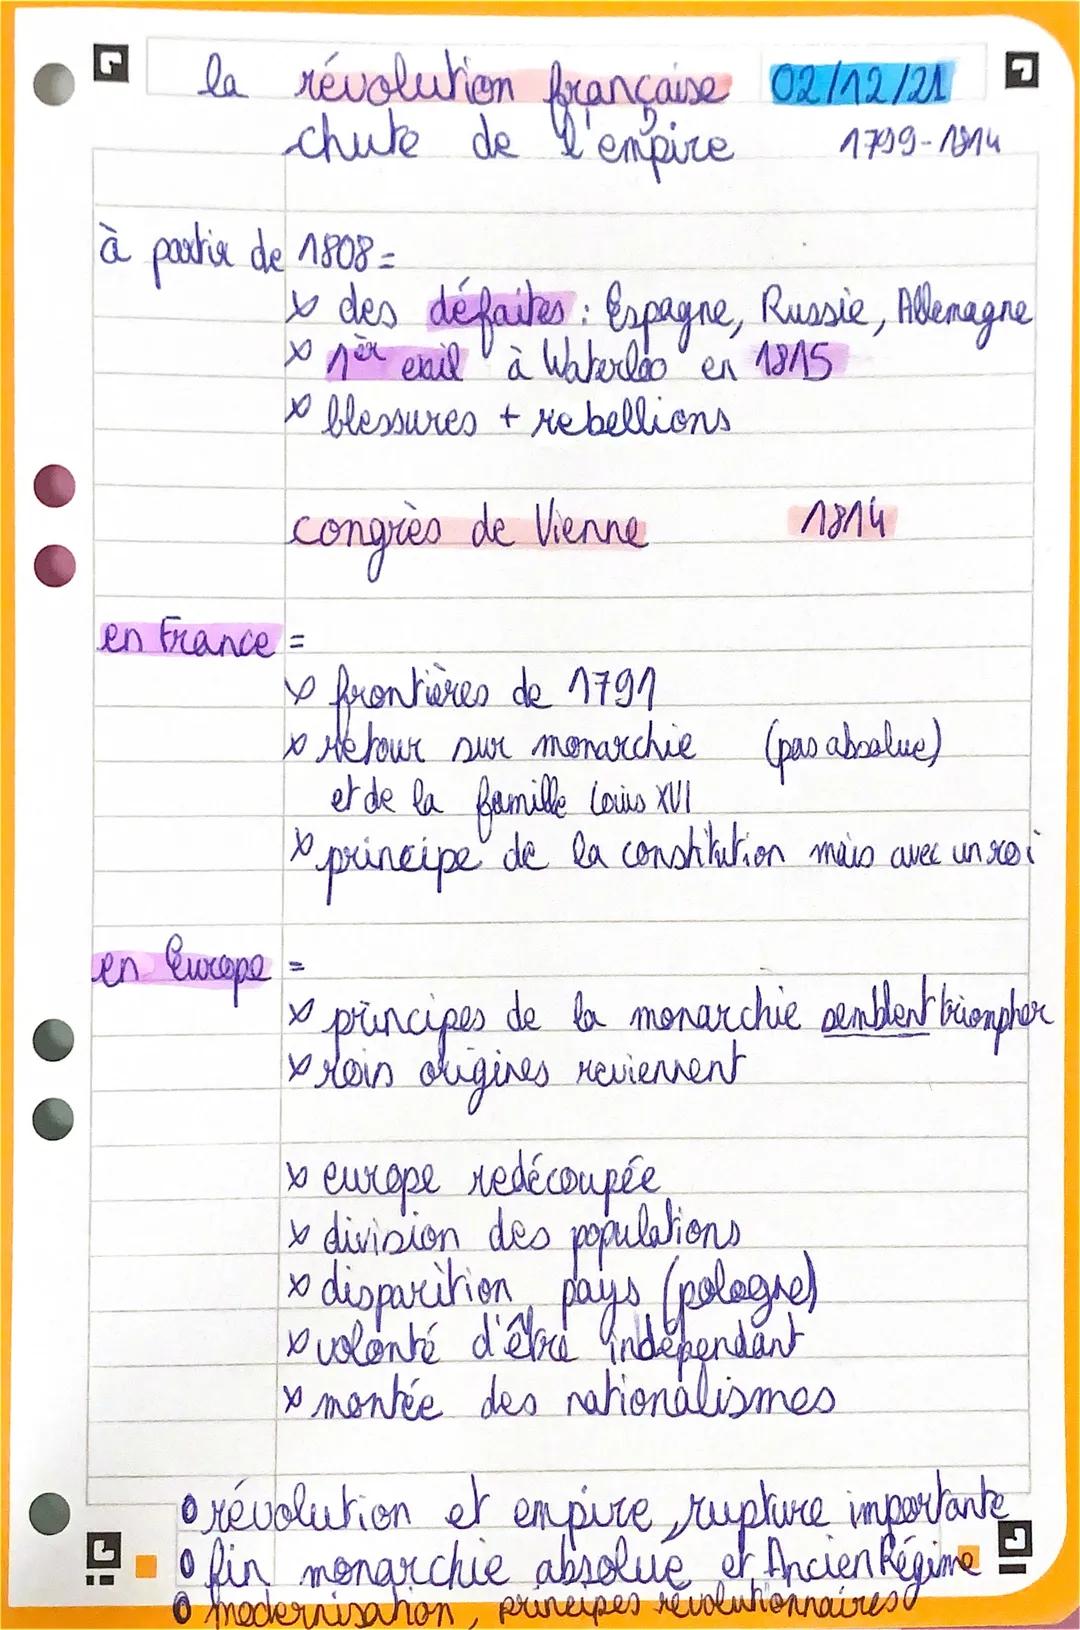 la révolution française 02/12/21
chute de l'empire 1799-1814
à partir de 1808=
x des défaites : Espagne, Russie, Allemagne
x 1er exil à Waterloo en 1815
x blessures + rebellions
congrès de Vienne 1814
en France =
x frontières de 1791
x retour sur monarchie (pas absolue)
et de la famille Louis XVI
x principe de la constitution mais avec un roi
en Europe =
x principes de la monarchie semblent triompher
x rois origines reviennent
x europe redécoupée
x division des populations
x disparition pays (pologne)
x volonté d'être indépendant
x montée des nationalismes
o révolution et empire, rupture importante
o fin monarchie absolue et Ancien Régime
o modernisation, principes révolutionnaires